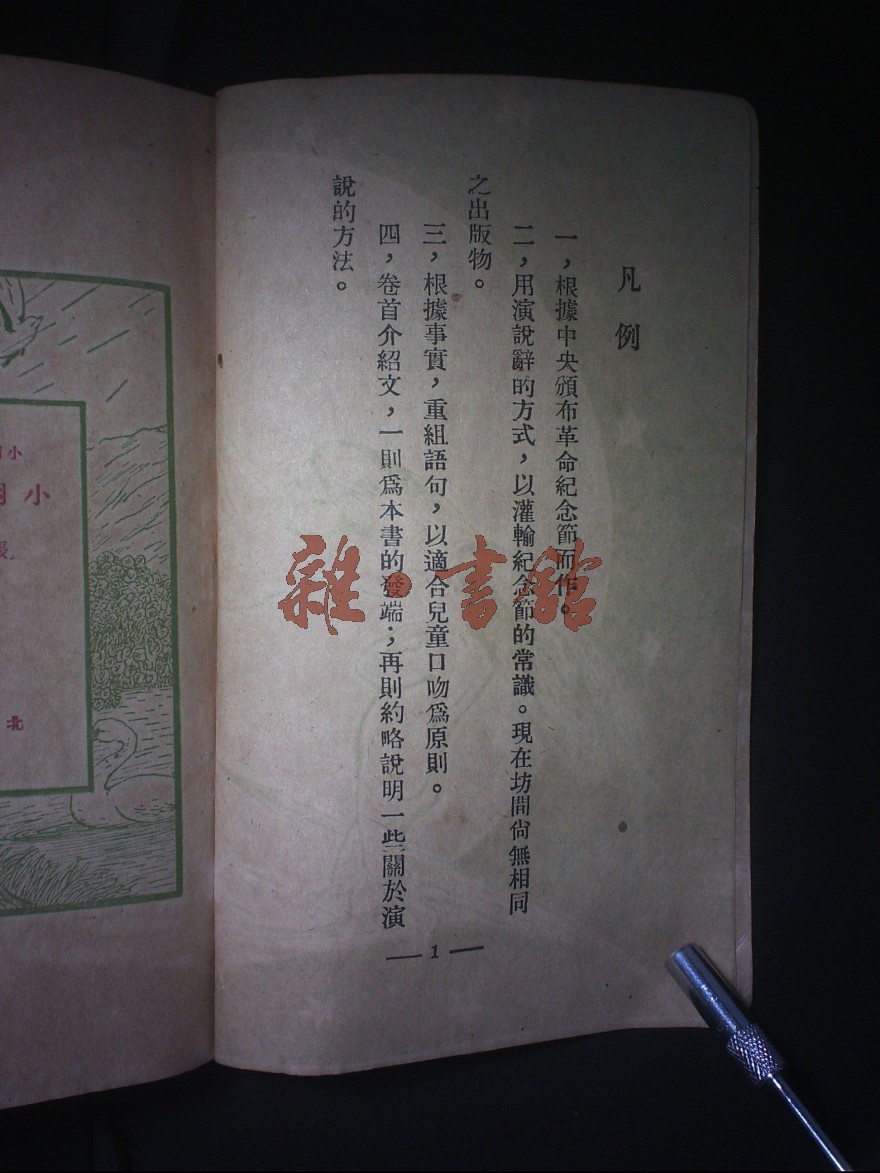 凡例
一，根據中央頒布革命紀念節而作。
二，用演說辭的方式，以灌輸紀念節的常識。現在坊間尙無相同
之出版物。
三，根據事實，重組語句，以適合兒童口吻爲原則。
四，卷首介紹文，一則爲本書的發端；再則約略說明一些關於演
說的方法。
— 1 —
雜·書館
小
小
北